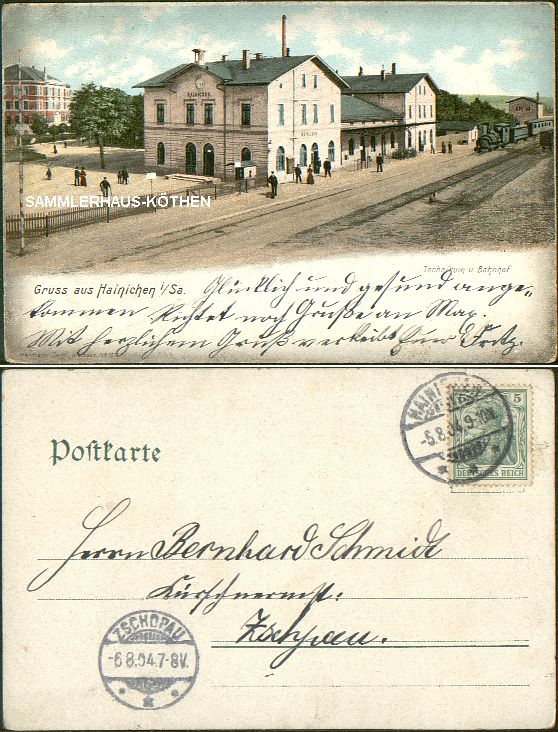 HAINICHEN
SAMMLERHAUS-KÖTHEN
Technikum u. Bahnhof
Gruss aus Hainichen i/Sa. Glücklich und gesund ange-
kommen Richtet noch Grüße an Max.
Mit herzlichem Gruß verbleibt Euer Fritz.
Postkarte
HAINICHEN
-5.8.04.9-10V.
5
DEUTSCHES REICH
Herrn Bernhard Schmidt
Kürschnermst:
Zschopau.
ZSCHOPAU
-6.8.04.7-8V.